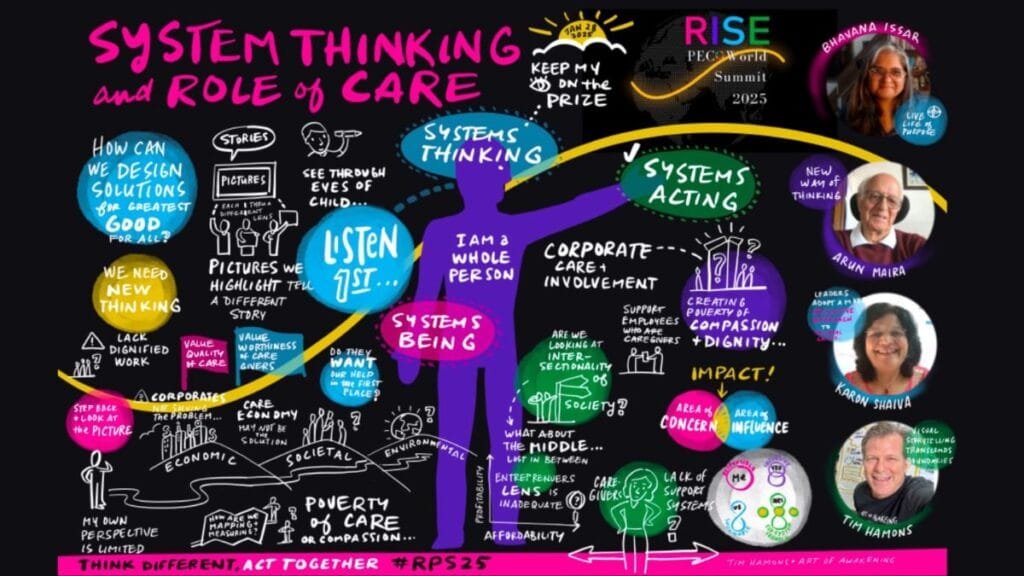 SYSTEM THINKING
and ROLE of CARE
JAN 28
2025
KEEP MY
ON the
PRIZE
RISE
PECGWorld
Summit
2025
BHAVANA ISSAR
LIVE
LIFE of
PURPOSE
HOW CAN
WE DESIGN
SOLUTIONS
for GREATEST
GOOD
FOR ALL?
STORIES
PICTURES
EACH
DIFFERENT
LENS
PICTURES WE
HIGHLIGHT TELL
A DIFFERENT
STORY
SEE THROUGH
EYES OF
CHILD...
SYSTEMS
THINKING
LISTEN
1ST...
I AM a
WHOLE
PERSON
SYSTEMS
BEING
SYSTEMS
ACTING
NEW
WAY of
THINKING
ARUN MAIRA
CORPORATE
CARE +
INVOLVEMENT
CREATING
POVERTY OF
COMPASSION
+ DIGNITY...
WE NEED
NEW
THINKING
LACK
DIGNIFIED
WORK
VALUE
QUALITY
of CARE
VALUE
WORTHINESS
OF CARE
GIVERS
DO THEY
WANT
OUR HELP
IN the FIRST
PLACE?
SUPPORT
EMPLOYEES
WHO ARE
CAREGIVERS
ARE WE
LOOKING AT
INTER-
SECTIONALITY
OF
SOCIETY?
LEADERS
ADOPT A
TO
KARON SHAIVA
IMPACT!
AREA of
CONCERN
AREA of
INFLUENCE
STEP BACK
+ LOOK AT
the PICTURE
CORPORATES
NOT SOLVING
the PROBLEM...
CARE
ECONOMY
MAY NOT BE
THE SOLUTION
ECONOMIC
SOCIETAL
ENVIRONMENTAL
WHAT ABOUT
THE MIDDLE...
LOST IN BETWEEN
ENTREPRENEURS
LENS IS
INADEQUATE
PROFITABILITY
AFFORDABILITY
CARE-
GIVERS
LACK of
SUPPORT
SYSTEMS
ME
YOU
US
VISUAL
STORYTELLING
TRANSCENDS
BOUNDARIES
TIM HAMONS
MY OWN
PERSPECTIVE
IS LIMITED
HOW ARE WE
MAPPING +
MEASURING?
POVERTY
of CARE
or COMPASSION...
THINK DIFFERENT, ACT TOGETHER #RPS25
TIM HAMONS • ART OF AWAKENING